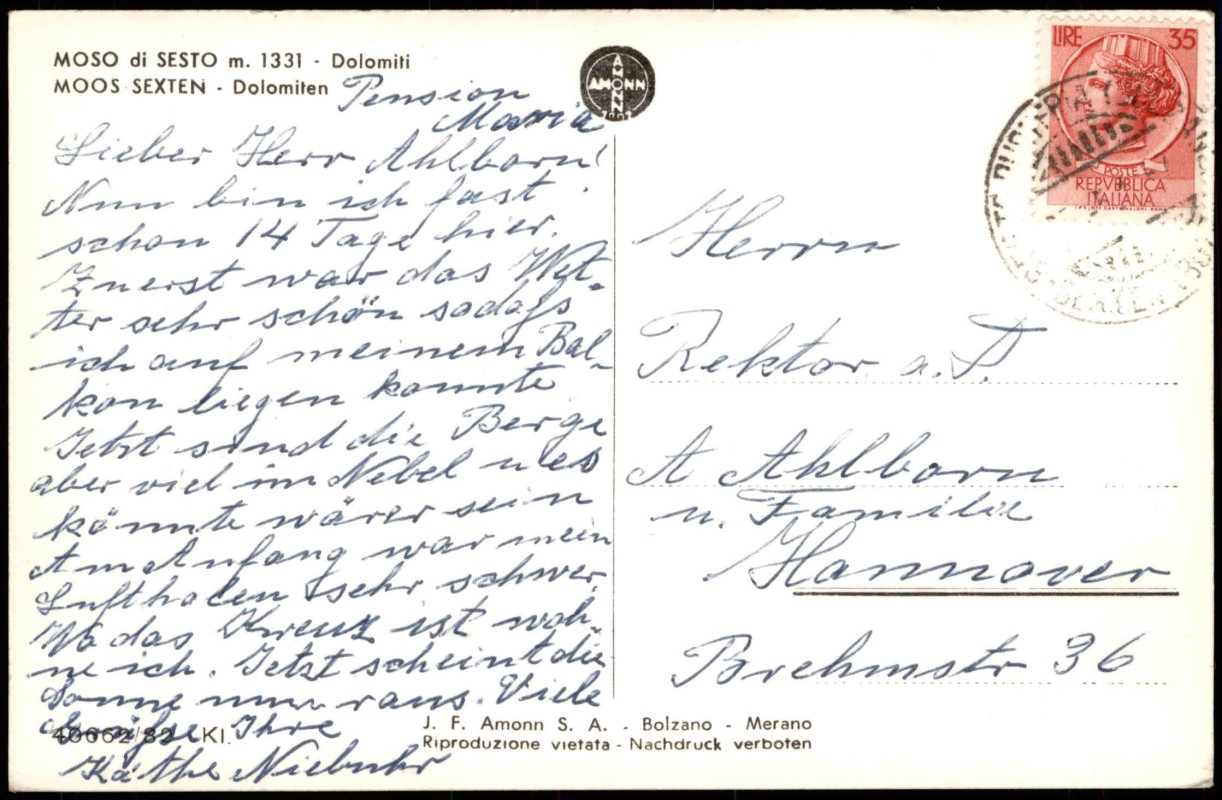 MOSO di SESTO m. 1331 - Dolomiti
MOOS SEXTEN - Dolomiten
Pension
Maria
Lieber Herr Ahlborn!
Nun bin ich fast
schon 14 Tage hier.
Zuerst war das Wet-
ter sehr schön sodass
ich auf meinem Bal-
kon liegen konnte
Jetzt sind die Berge
aber viel im Nebel u es
könnte wärer sein
Am Anfang war mein
Luftholen sehr schwer
Wo das Kreuz ist woh-
ne ich. Jetzt scheint die
Sonne nur raus. Viele
Grüsse Ihre
Käthe Niebuhr
40662/82 Kl.
AMONN
AMONN
LIRE 35
POSTE
REPVBBLICA
ITALIANA
Herrn
Rektor a. D.
A Ahlborn
u. Familie
Hannover
Brehmstr 36
J. F. Amonn S. A. - Bolzano - Merano
Riproduzione vietata - Nachdruck verboten